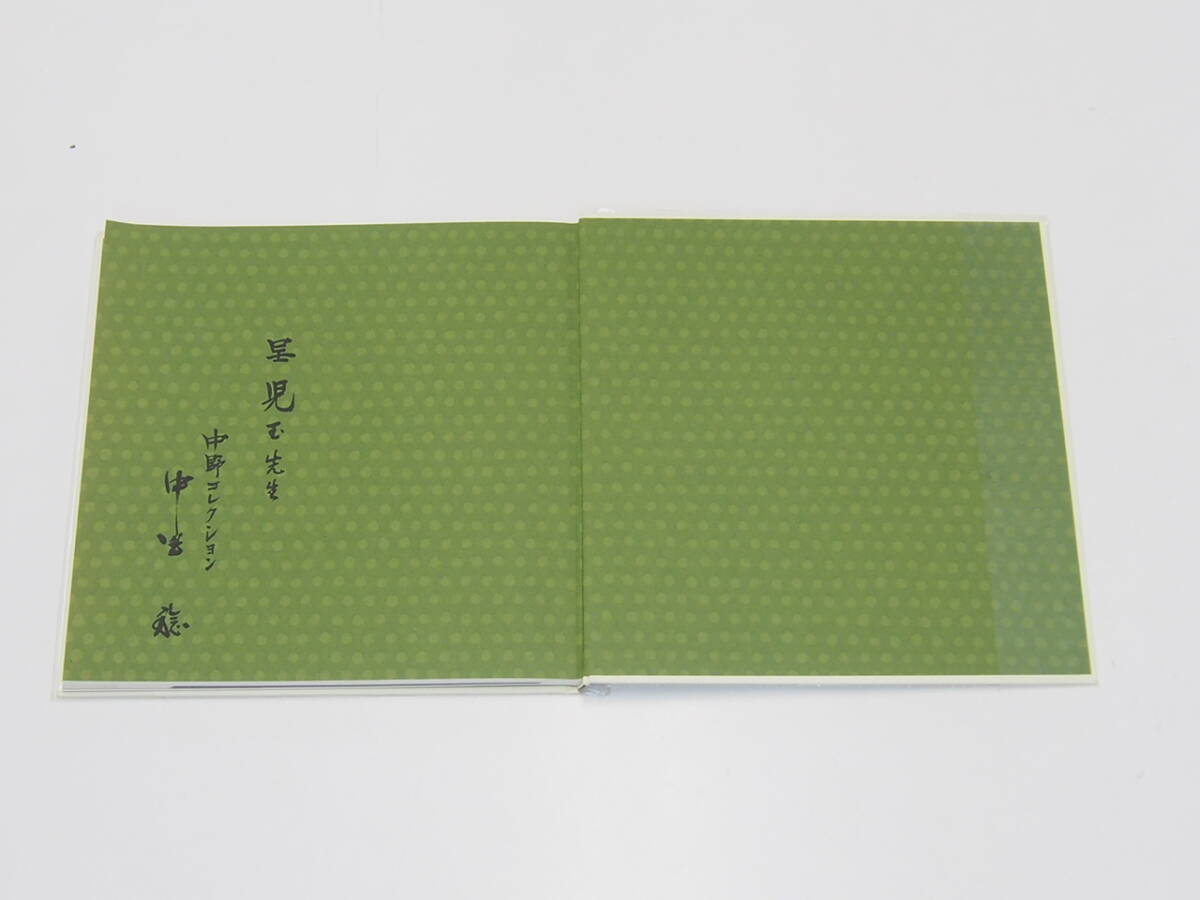 呈 児玉先生
中野コレクション
中野 稔